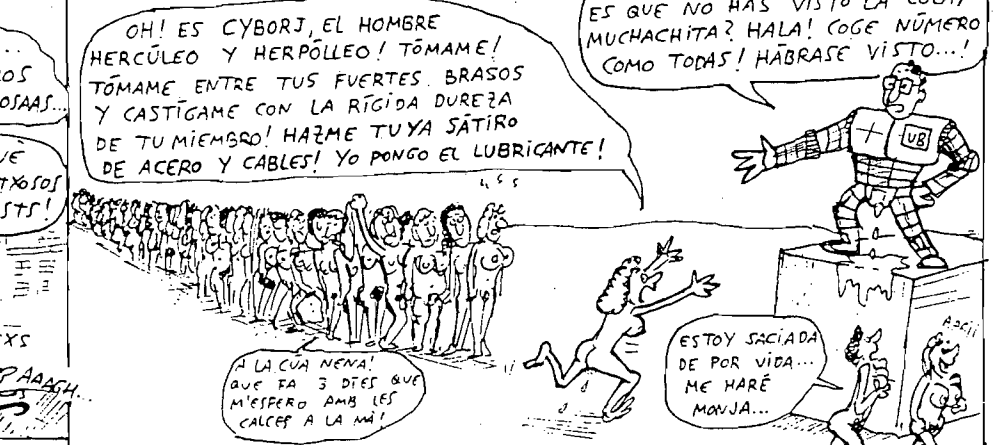 ...
OS
OSAAS...
È
TXOSOS
STS!
XS
AAAGH...
OH! ES CYBORJ, EL HOMBRE
HERCÚLEO Y HERPÓLLEO! TÓMAME!
TÓMAME ENTRE TUS FUERTES BRASOS
Y CASTÍGAME CON LA RÍGIDA DUREZA
DE TU MIEMBRO! HAZME TUYA SÁTIRO
DE ACERO Y CABLES! YO PONGO EL LUBRICANTE!
ES QUE NO HAS VISTO LA COLA,
MUCHACHITA? HALA! COGE NÚMERO
COMO TODAS! HÁBRASE VISTO...!
UB
A LA CUA NENA!
QUE FA 3 DIES QUE
M'ESPERO AMB LES
CALCES A LA MÀ!
ESTOY SACIADA
DE POR VIDA...
ME HARÉ
MONJA...